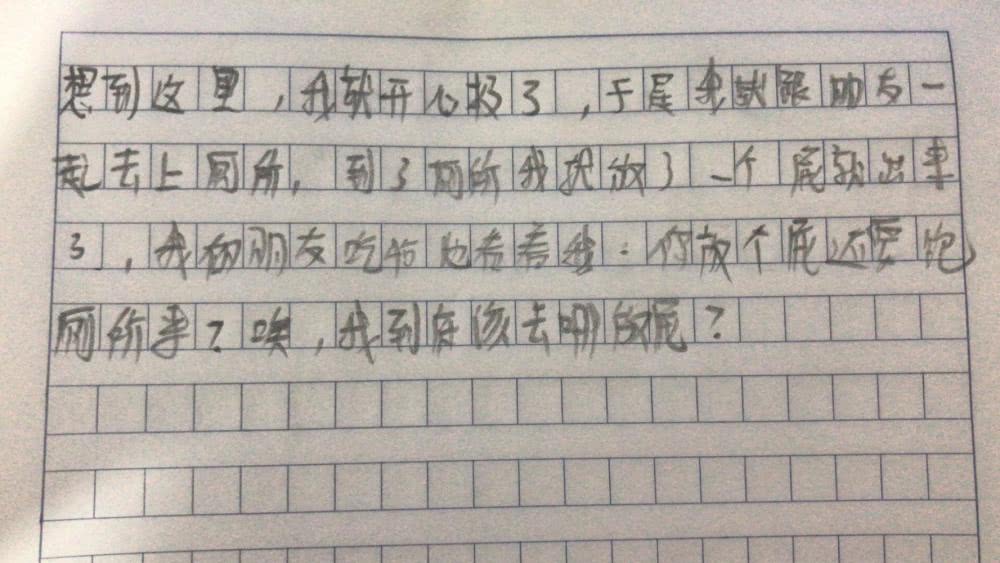 想到这里，我就开心极了，于是我就跟朋友一
起去上厕所，到了厕所我就放了一个屁就出来
了，我的朋友吃惊地看着我：你放个屁还要跑
厕所来？唉，我到底该去哪放屁？